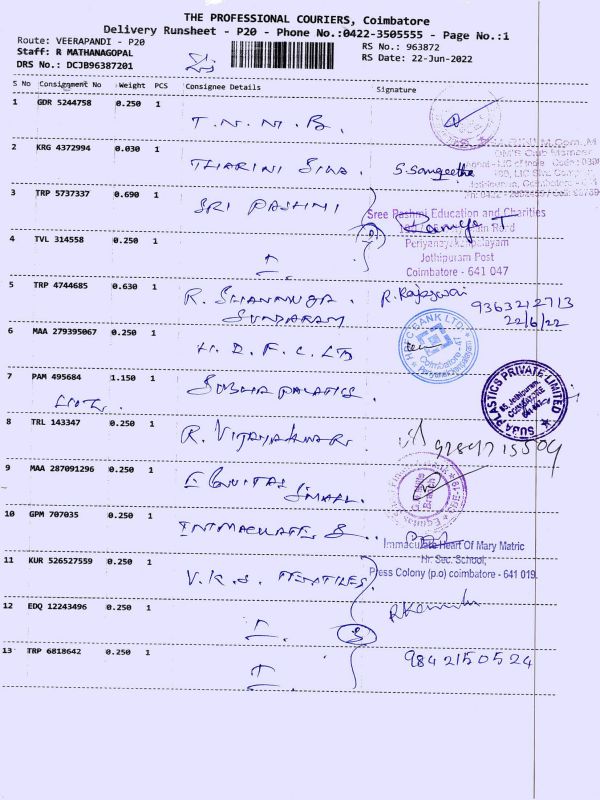 THE PROFESSIONAL COURIERS, Coimbatore
Delivery Runsheet - P20 - Phone No.:0422-3505555 - Page No.:1
Route: VEERAPANDI - P20
RS No.: 963872
Staff: R MATHANAGOPAL
RS Date: 22-Jun-2022
DRS No.: DCJB96387201
S No Consignment No Weight PCS Consignee Details Signature
1 GDR 5244758 0.250 1
T.N.M.B.
2 KRG 4372994 0.030 1
THARINI SIVA S. Sangeetha
3 TRP 5737337 0.690 1
SRI PASHMI
Sree Pashmi Education and Charities
Periyanayakanpalayam
Jothipuram Post
Coimbatore - 641 047
4 TVL 314558 0.250 1
5 TRP 4744685 0.630 1
R. SHANMUGA SUNDARAM R. Rajeswari 9363212713
22/6/22
6 MAA 279395067 0.250 1
H.D.F.C. LTD
HDFC BANK LTD
7 PAM 495684 1.150 1
SUBHA PLASTICS.
SUBA PLASTICS PRIVATE LIMITED
8 TRL 143347 0.250 1
R. VIJAYAKUMAR.
9 MAA 287091296 0.250 1
EQUITAS SMALL.
10 GPM 707035 0.250 1
INTMACULATE
Immaculate Heart Of Mary Matric
Hr. Sec. School,
Press Colony (p.o) coimbatore - 641 019.
11 KUR 526527559 0.250 1
V.K.S. TEXTILES
12 EDQ 12243496 0.250 1
3
13 TRP 6818642 0.250 1
9842150524